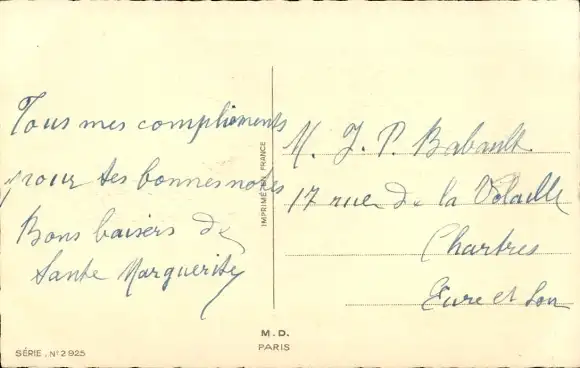 Tous mes compliments
pour tes bonnes notes
Bons baisers de
Tante Marguerite
M. J. P. Babault
17 rue de la Volaille
Chartres
Eure et Loir
IMPRIMÉ EN FRANCE
M.D.
PARIS
SÉRIE . N° 2925